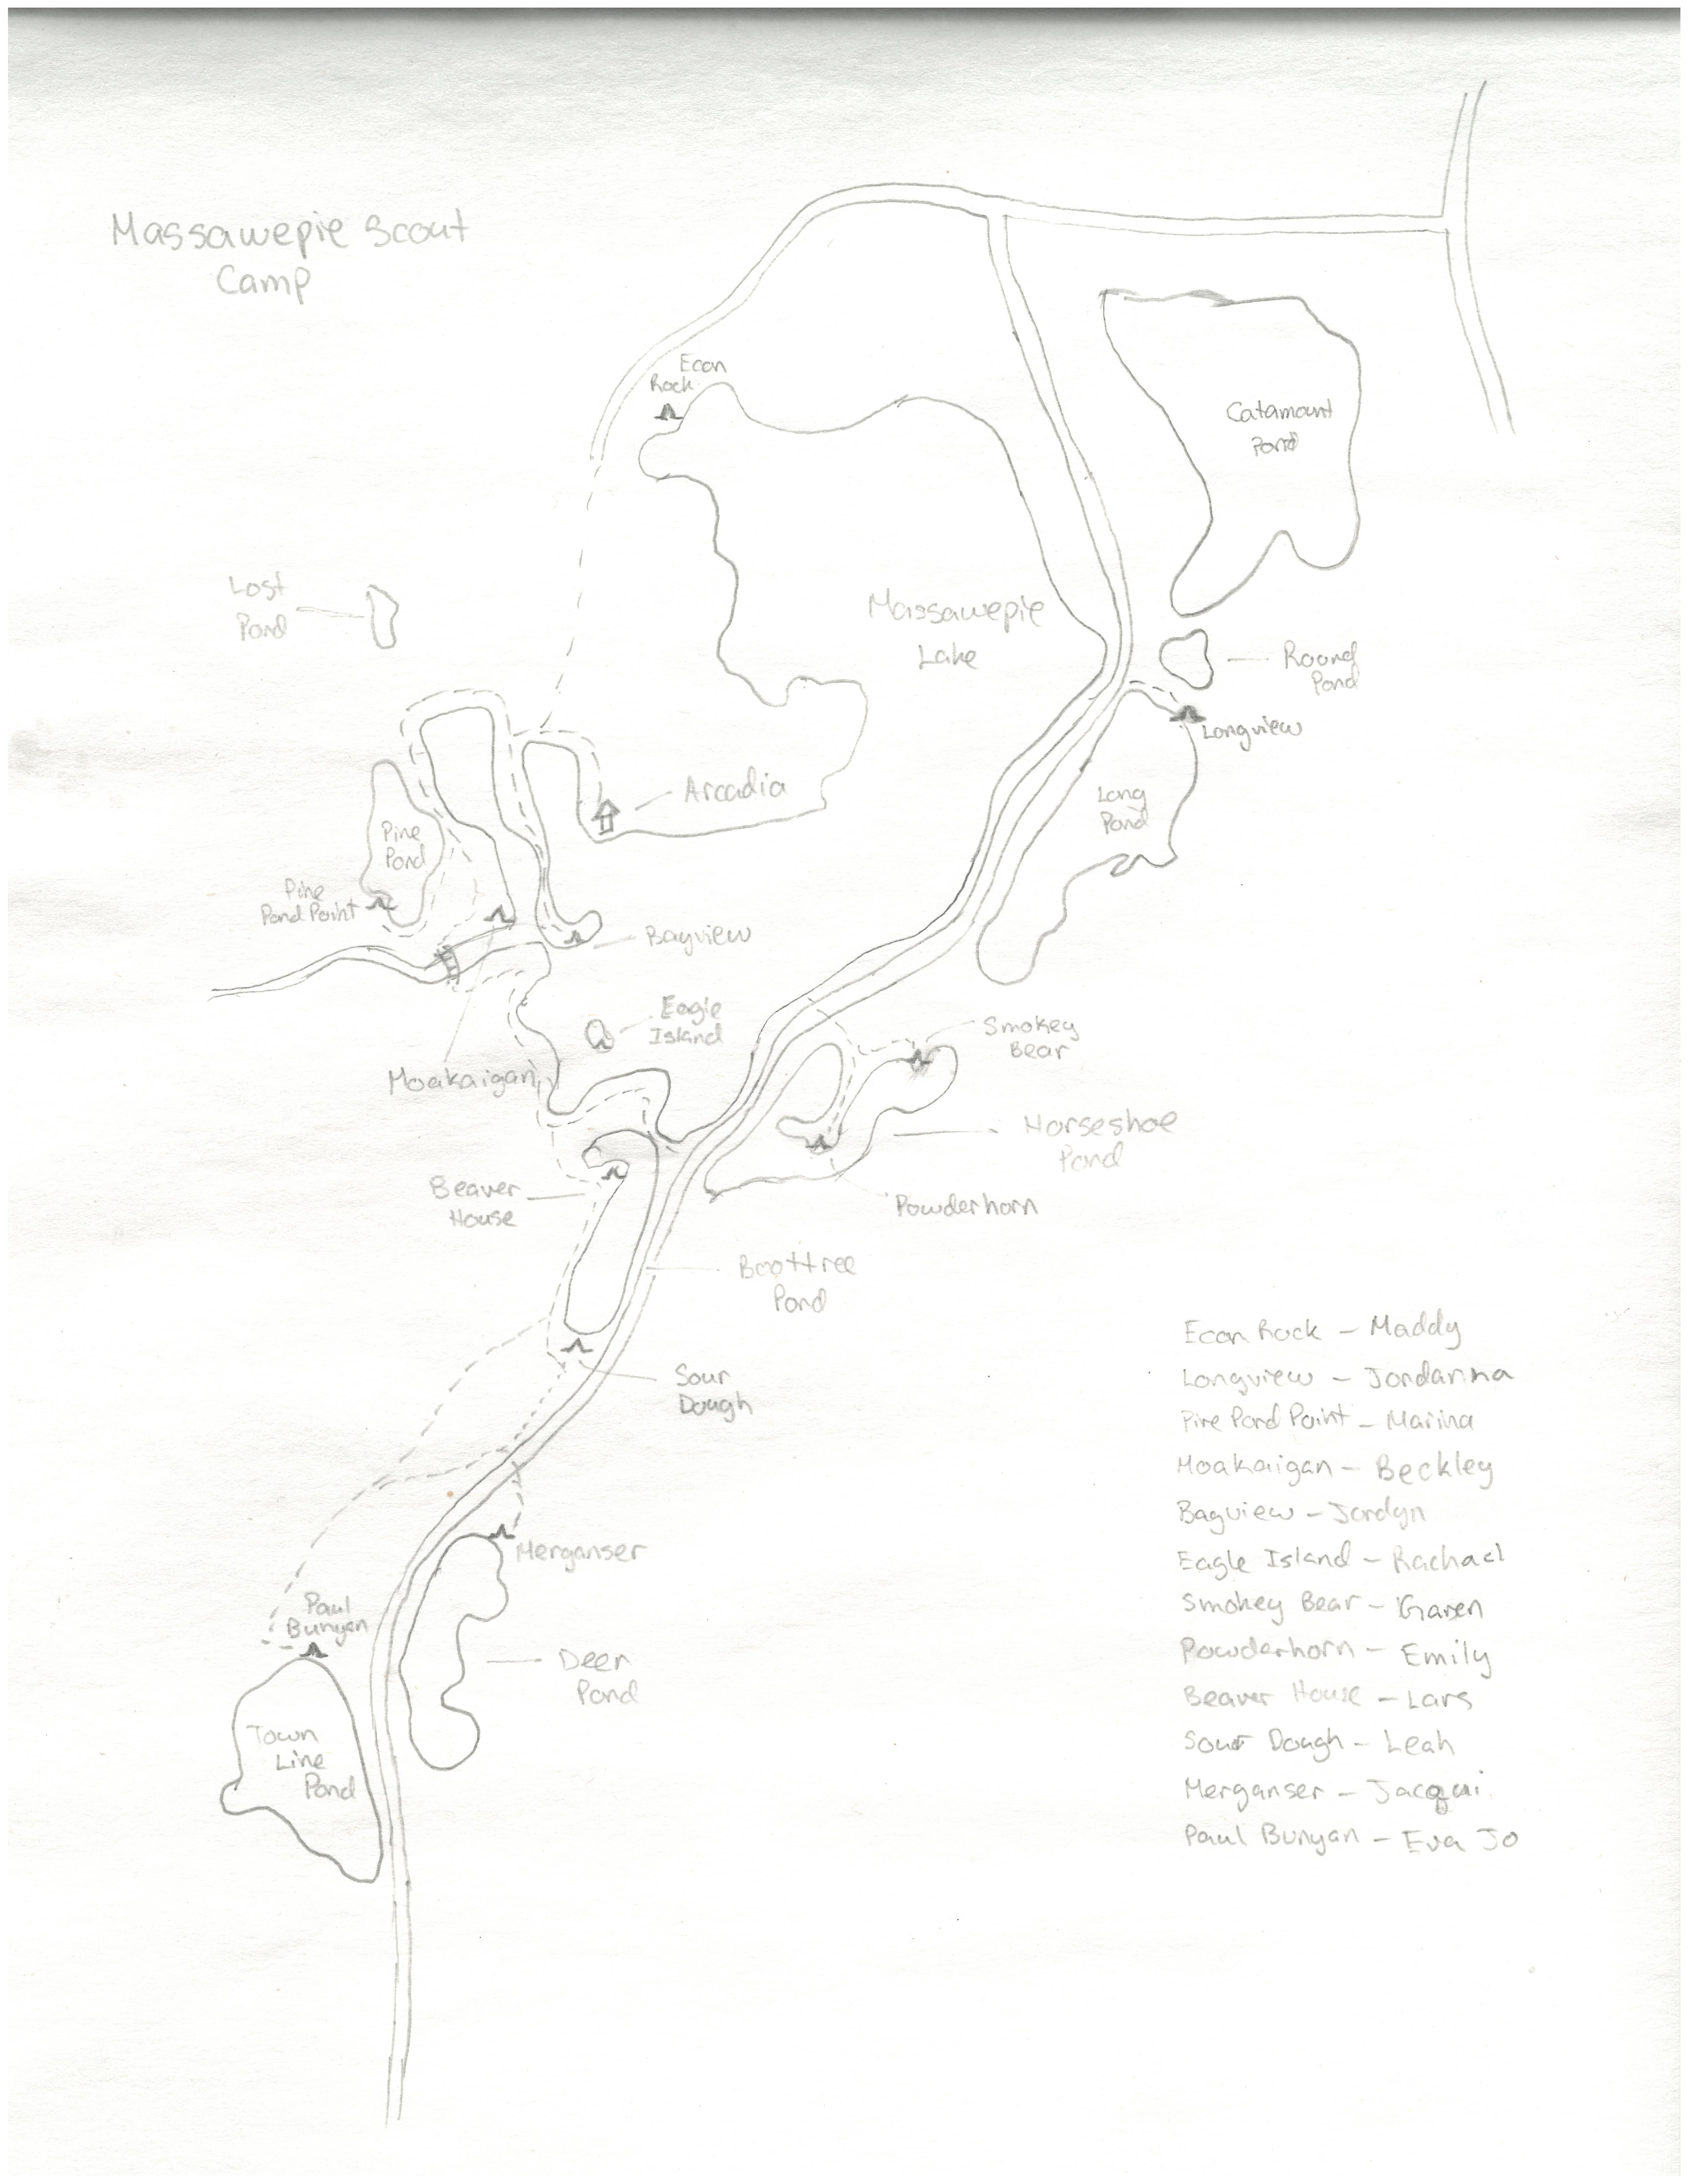 Massawepie Scout
Camp
Econ
Rock
Catamount
Pond
Lost
Pond
Massawepie
Lake
Round
Pond
Longview
Arcadia
Long
Pond
Pine
Pond
Pine
Pond Point
Bayview
Eagle
Island
Smokey
Bear
Moakaigan
Horseshoe
Pond
Beaver
House
Powderhorn
Boottree
Pond
Sour
Dough
Merganser
Paul
Bunyan
Deer
Pond
Town
Line
Pond
Econ Rock - Maddy
Longview - Jordanna
Pine Pond Point - Marina
Moakaigan - Beckley
Bayview - Jordyn
Eagle Island - Rachael
Smokey Bear - Garen
Powderhorn - Emily
Beaver House - Lars
Sour Dough - Leah
Merganser - Jacqui
Paul Bunyan - Eva Jo